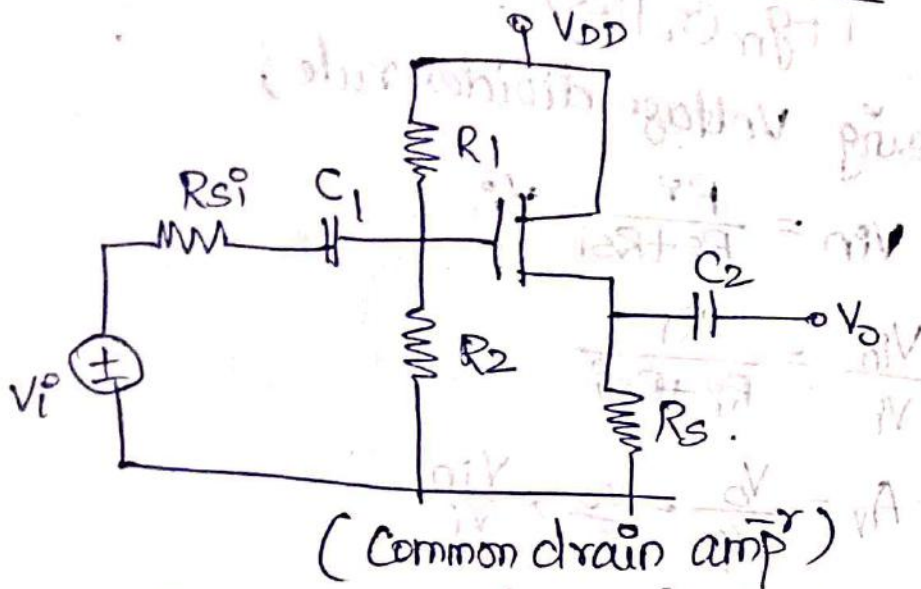 VDD
R1
Rsi
C1
C2
Vo
R2
Vi
Rs.
(Common drain ampr)